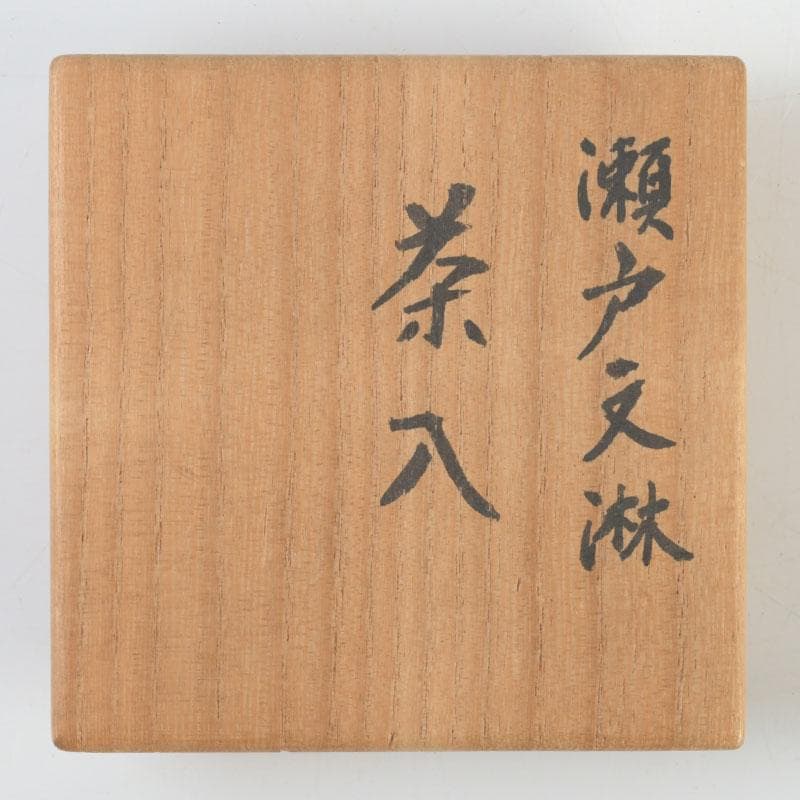 瀬戸文淋
茶入